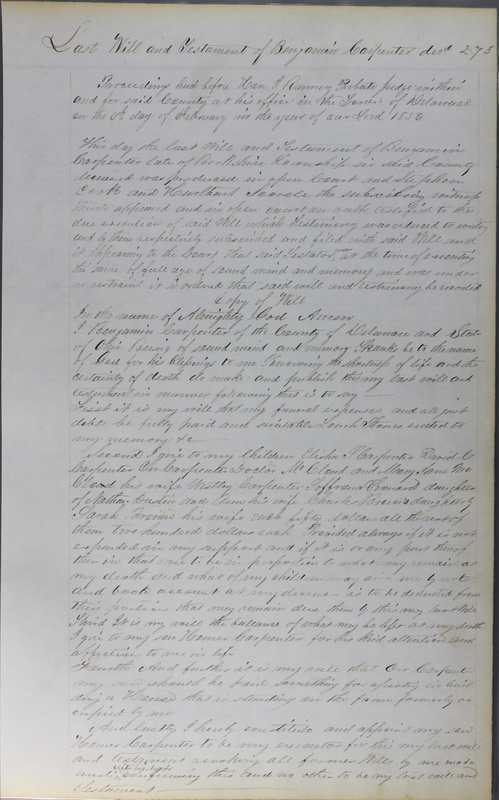 Last Will and Testament of Benjamin Carpenter decd 273
Proceedings had before Hon. T Ranney Probate Judge within
and for said County at his office in the Town of Delaware
on the day of February in the year of our Lord 1856
This day the last Will and Testament of Benjamin
Carpenter late of Berkshire Township in said County
deceased was produced in open Court and Stephen
Cook and Hurlburt the subscribing witness
thereto appeared and in open court on oath testified to the
due execution of said Will which Testimony was reduced to writing
and by them respectively subscribed and filed with said Will and
it appearing to the Court that said Testator was at the time of executing
the same of full age of sound mind and memory and was under
no restraint it is ordered that said will and testimony be recorded
Copy of Will
In the name of Almighty God Amen
I Benjamin Carpenter of the County of Delaware and State
of Ohio Being of sound mind and memory Thanks be to the name
of God for his blessings to me Knowing the shortness of life and the
certainty of death do make and publish this my last will and
testament in manner following that is to say
First it is my will that my funeral expenses and all just
debts be fully paid and suitable Tomb Stones erected to
my memory &c
Second I give to my Children Elisha Carpenter David C
Carpenter Orr Carpenter Doctor McCloud and Mary Jane Mc
Cloud his wife Westley Carpenter daughter
of Nathan Dustin and his wife Charles Brown daughter
Sarah Brown his wife each fifty dollars all the rest of
them two hundred dollars each Provided always if it is not
expended in my support and if it is or any part thereof
then in that case to be in proportion to what may remain at
my death and what of my children may owe me by note
and book account at my decease is to be deducted from
their portion that may remain due them by this my last Will
Third It is my will the ballance of what may be left at my death
I give to my son Homer Carpenter for his kind attention and
affection to me in life
Fourth And further it is my will that Orr Carpenter
my son should be paid something for assisting in buil
ding a House that is standing on the farm formerly oc
cupied by me
And lastly I hereby constitute and appoint my son
Homer Carpenter to be my executor for this my last will
and testament revoking all former Wills by me made
and confirming this and no other to be my last will and
Testament